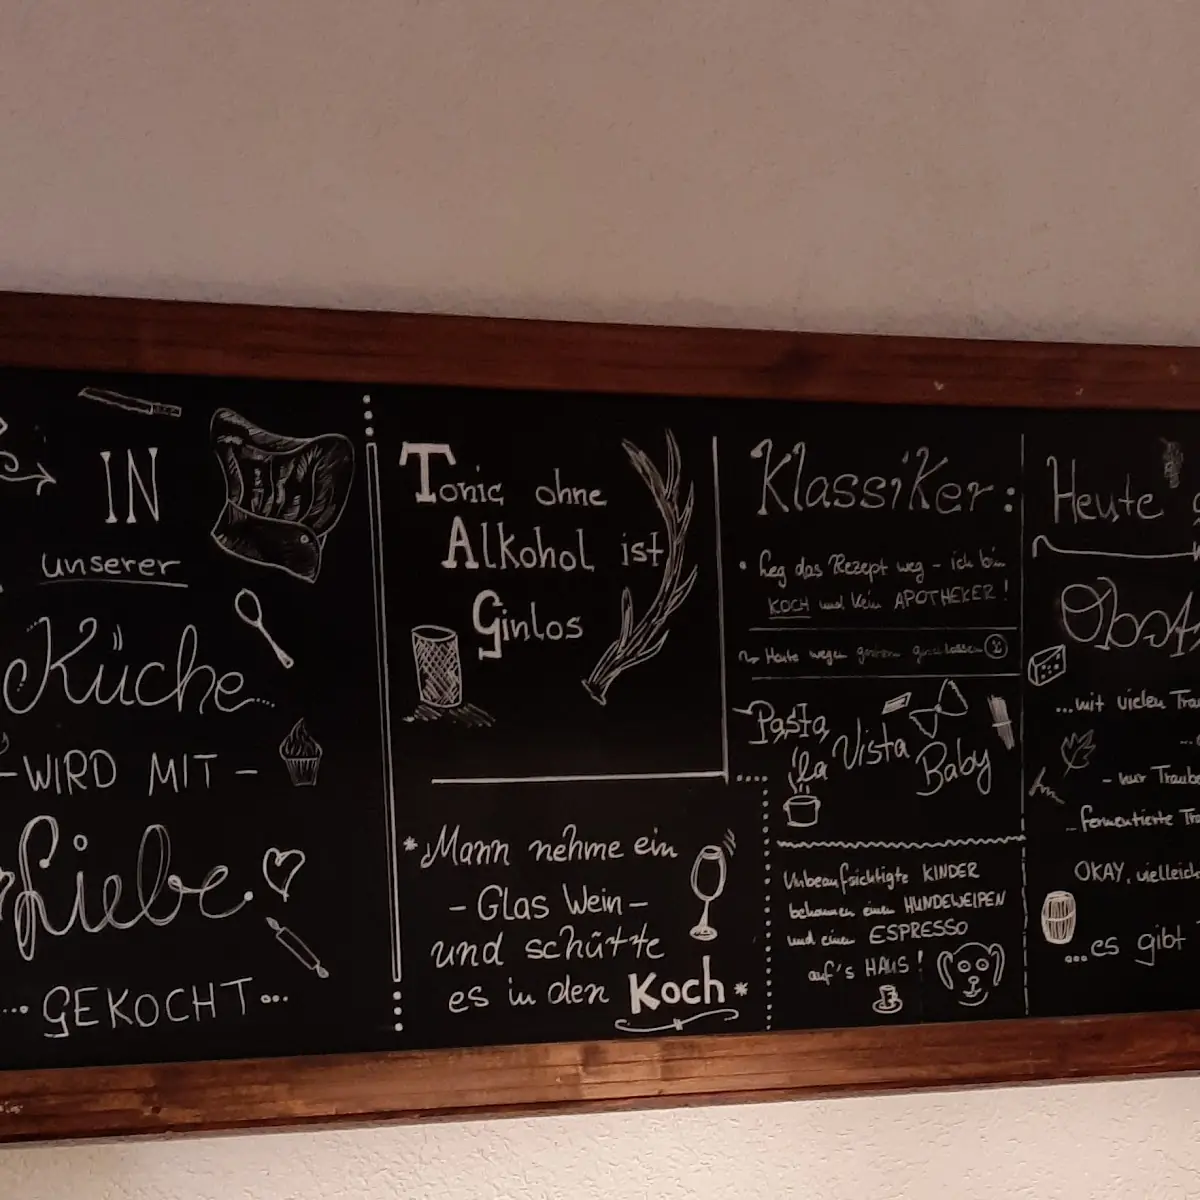 IN
unserer
Küche...
-WIRD MIT-
Liebe
...GEKOCHT...
Tonic ohne
Alkohol ist
Ginlos
*Mann nehme ein
- Glas Wein -
und schütte
es in den Koch*
Klassiker:
• Leg das Rezept weg - ich bin
KOCH und kein APOTHEKER!
Heute wegen gestern geschlossen
Pasta
la Vista
Baby
Unbeaufsichtigte KINDER
bekommen einen HUNDEWELPEN
und einen ESPRESSO
auf's HAUS!
Heute
...mit vielen
- nur
... fermentierte
OKAY, vielleicht
...es gibt